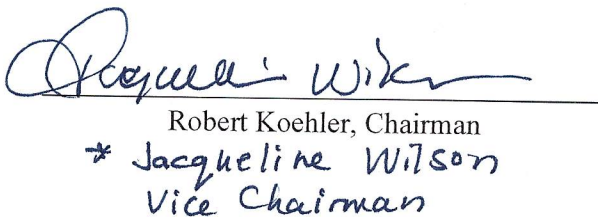 Jacqueline Wilson
Robert Koehler, Chairman
* Jacqueline Wilson
Vice Chairman